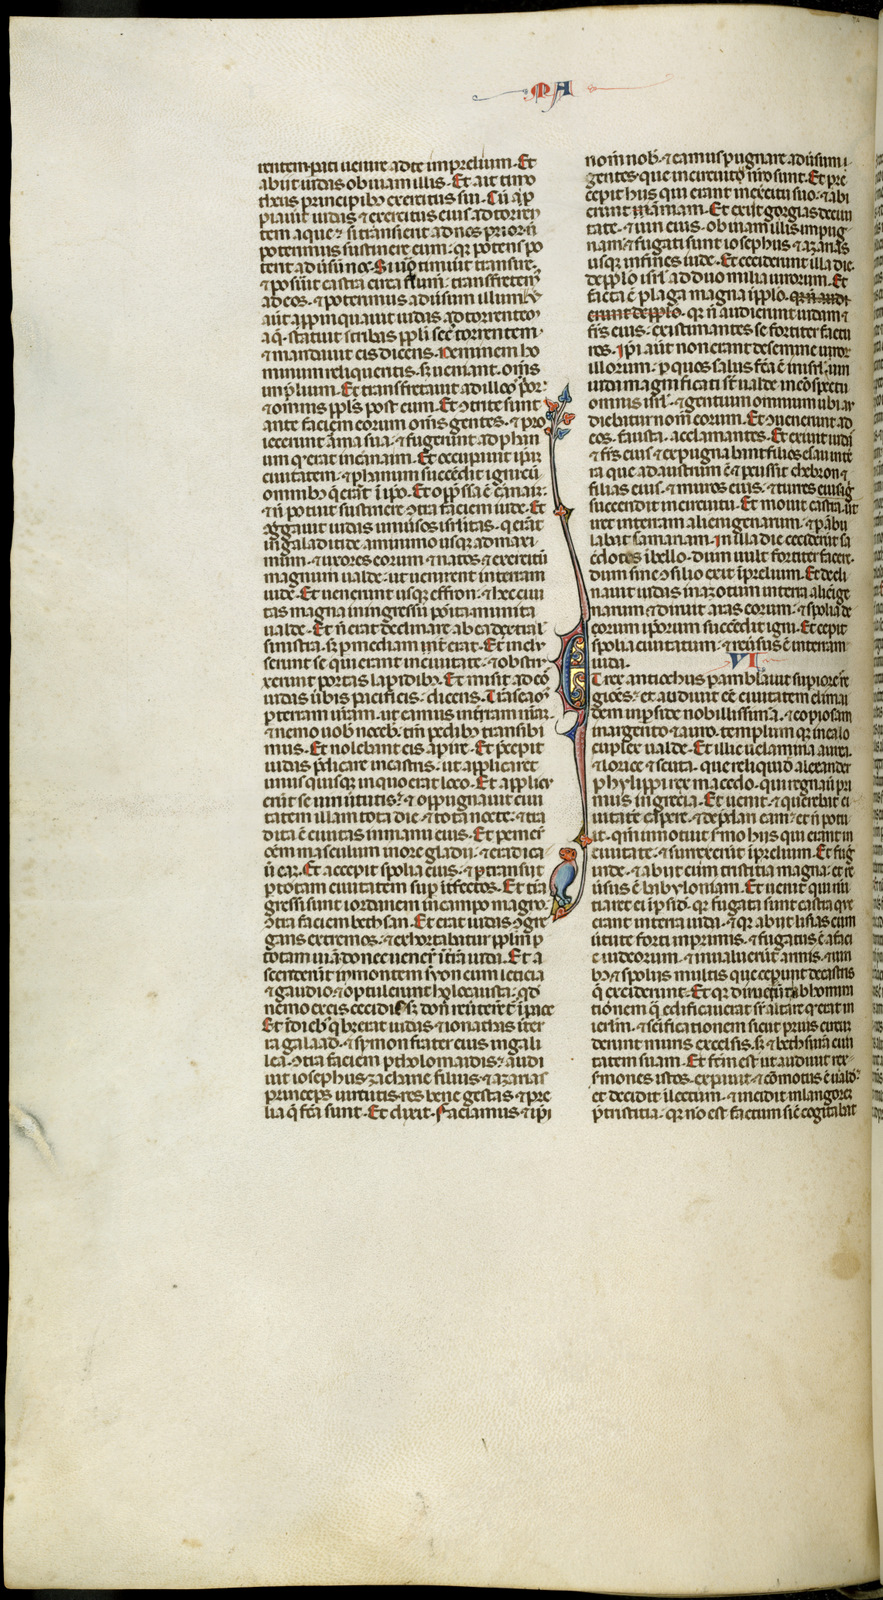 MA
uentem parati uenire ad te in prelium. Et
abiit iudas obuiam illis. Et ait timo
theus principibꝫ exercitus sui. Cū ap̄p
piauit iudas ⁊ exercitus eius ad torren
tem aque ⁊ si transierit ad nos prior nō
poterimus sustinere eum. qꝛ potens po
tent̄ aduersū nos. Si u̾o timuit transire.
⁊ posuit castra extra flum̄. transfretem̄
ad eos. ⁊ poterimus aduersum illum. Vt
aūt appinquauit iudas ad torrentem
aq̄. statuit scribas ppl̄i sec̾ torrentem.
⁊ mandauit eis dicens. Neminem ho
minum reliqueritis. sꝫ ueniant om̄s
in p̄lium. Et transfretauit ad illos p̾or.
⁊ omnis ppl̄s post eum. Et ꝯtrite sunt
ante faciem eorum om̄s gentes. ⁊ pro
iecerunt arma sua. ⁊ fugerunt ad phan
um q̾ erat in carnaim. Et occupauit ip̄am
ciuitatem. ⁊ phanum succendit igni cū
omnibꝫ q̄ erāt ī ip̄o. Et oppressa ē carnaim
⁊ n̄ potuit sustinere ꝯtra faciem iude. Et
ꝯgꝑgauit iudas uniuersos isrlitas. q̄ erāt
in galaditide. a minimo usqꝫ ad maxi
mum. ⁊ uxores eorum ⁊ natos. ⁊ exercitū
magnum ualde. ut uenirent in terram
iude. Et uenerunt usqꝫ effron. ⁊ hec ciui
tas magna in ingressu posita munita
ualde. Et n̄ erat declinare ab ea dextral̾
sinistra. sꝫ ꝑ mediam iter erat. Et inclu
serunt se qui erant in ciuitate. ⁊ obstru
xerunt portas lapidibꝫ. Et misit ad eos
iudas ūbis pacificis. dicens. Transeam̾
ꝑ terram uram. ut eamus in terram nram.
⁊ nemo uob̄ nocebit. tm̄ pedibꝫ transibi
mus. Et nolebant eis apire. Et p̄cepit
iudas p̄dicare in castris. ut applicaret
unus quisqꝫ in quo erat loco. Et applicu
erūt se uiri uirtutis. ⁊ oppugnauit ciui
tatem illam tota die. ⁊ tota nocte. ⁊ tra
dita ē ciuitas in manu eius. Et peremer̄
oēm masculum in ore gladii. ⁊ eradica
ū eam. Et accepit spolia eius. ⁊ ꝑtransiit
ꝑ totam ciuitatem sup̄ int̄fectos. Et tr̄a
gressi sunt iordanem in campo magno.
ꝯtra faciem bethsan. Et erat iudas ꝯgre
gans extremos. ⁊ exhortabatur pplm̄ ꝑ
totam uiā donec uener̄ ī trā iuda. Et a
scenderūt in montem syon cum leticia
⁊ gaudio. ⁊ optulerunt holocausta. qd̄
nemo ex eis cecidiss̄ꝫ don̄ reuterēt̾ ī pace
Et ī diebꝫ q̾bꝫ erat iudas ⁊ ionathas ī ter
ra galaad. ⁊ symon frater eius in gali
lea ꝯtra faciem ptholomaidis. audi
uit iosephus zacharie filius ⁊ azarias
princeps uirtutis. res bene gestas ⁊ pre
lia q̄ fc̄a sunt. Et dixit. Faciamus ⁊ ip̄i
nom̄ nob̄. ⁊ eamus pugnare aduersum
gentes que in circuitu nr̄o sunt. Et pre
cepit hiis qui erant in exercitu suo. ⁊ abi
erunt iamniam. Et exiit gorgias de ciui
tate. ⁊ uiri eius. obuiam illis in pug
nam. ⁊ fugati sunt iosephus ⁊ azarias
usqꝫ in fines iude. Et ceciderunt illa die.
de pplo isrl̄ ad duo milia uirorum. Et
facta ē plaga magna ī pplo. qꝛ n̄ audi
erunt de pplo. qꝛ n̄ audierunt iudam ⁊
fr̄s eius. existimantes se fortiter factu
ros. Ipi aūt non erant de semine uiror̄
illorum. ꝑ quos salus fc̄a ē in isrl̄. uiri
iuda magnificati st̄ ualde in cōspectu
omnis isrl̄. ⁊ gentium omnium ubi au
diebatur nom̄ eorum. Et ꝯuenerunt ad
eos. fausta. acclamantes. Et exiuit iudas
⁊ fr̄s eius ⁊ expugnabant filios esau in ter
ra que ad austrum ē ⁊ pcussit chebron ⁊
filias eius. ⁊ muros eius. ⁊ turres eius ig̾
succendit in circuitu. Et mouit castra. ut
iret in terram alienigenarum. ⁊ perābu
labat samariam. In illa die ceciderūt sa
c̾dotes ī bello. dum uult fortiter facere.
dum sine ꝯsilio exit ī prelium. Et decli
nauit iudas in azotum in terrā alienige
narum ⁊ diruit aras eorum. ⁊ spolia de
eorum ip̄orum succendit igni. Et cepit
spolia ciuitatum. ⁊ reuersus ē in terram
iuda. VI
Et rex antiochus perambulauit supiores re
giones. ⁊ audiuit eē ciuitatem elimai
dem in perside nobilissimā. ⁊ copiosam
in argento ⁊ auro. templum qꝫ in ea lo
cuples ualde. Et illic uelamina aurea.
⁊ lorice ⁊ scuta. que reliquid alexander
phylippi rex macedo. qui regnauit pri
mus in grecia. Et uenit. ⁊ querebat ci
uitatē cap̾e. ⁊ depdari eam. ⁊ n̄ potu
it. qm̄ innotuit sermo hiis qui erant in
ciuitate. ⁊ surrexerūt ī prelium. Et fug̾
inde. ⁊ abiit cum tristitia magna. ⁊ re
uersus ē babyloniam. Et uenit qui nū
tiaret ei ī perside. qꝛ fugata sunt castra que
erant in terra iuda. ⁊ qꝛ abiit lisias cum
uirtute forti in primis. ⁊ fugatus ē a faci
e iudeorum. ⁊ inualuerūt armis. ⁊ uiri
bꝫ. ⁊ spoliis multis que ceperunt de castris
q̄ exciderunt. Et qꝛ diruerūt abhomina
tionem q̄ edificauerat sr̄ altare q̾ erat in
ierl̄m. ⁊ scificationem sicut prius circū
derunt muris excelsis. sꝫ ⁊ bethsurā ciui
tatem suam. Et fcm̄ est ut audiuit rex
sermones istos. expauit. ⁊ cōmotus ē ualde.
et decidit ī lectum. ⁊ incidit in langorem
p̄ tristitia. qꝛ nō est factum sic̄ cogitabat